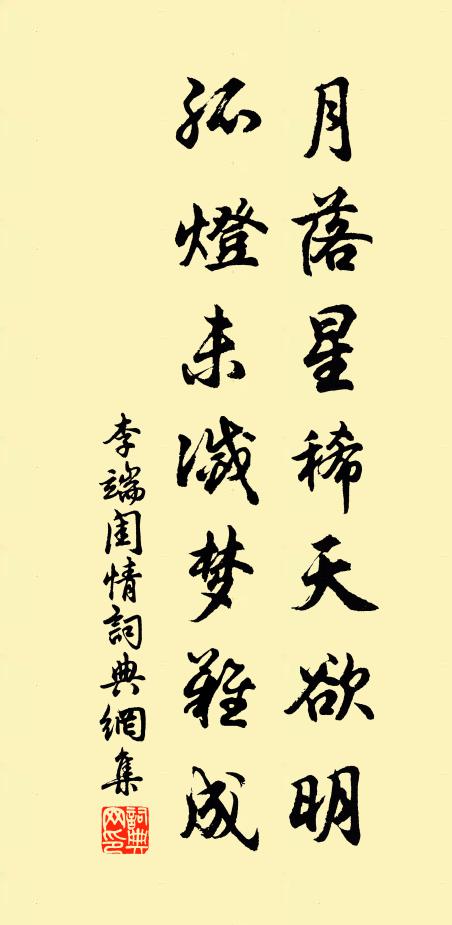 月落星稀天欲明
孤燈未滅梦難成
李端閨情詞典網集
詞典网印